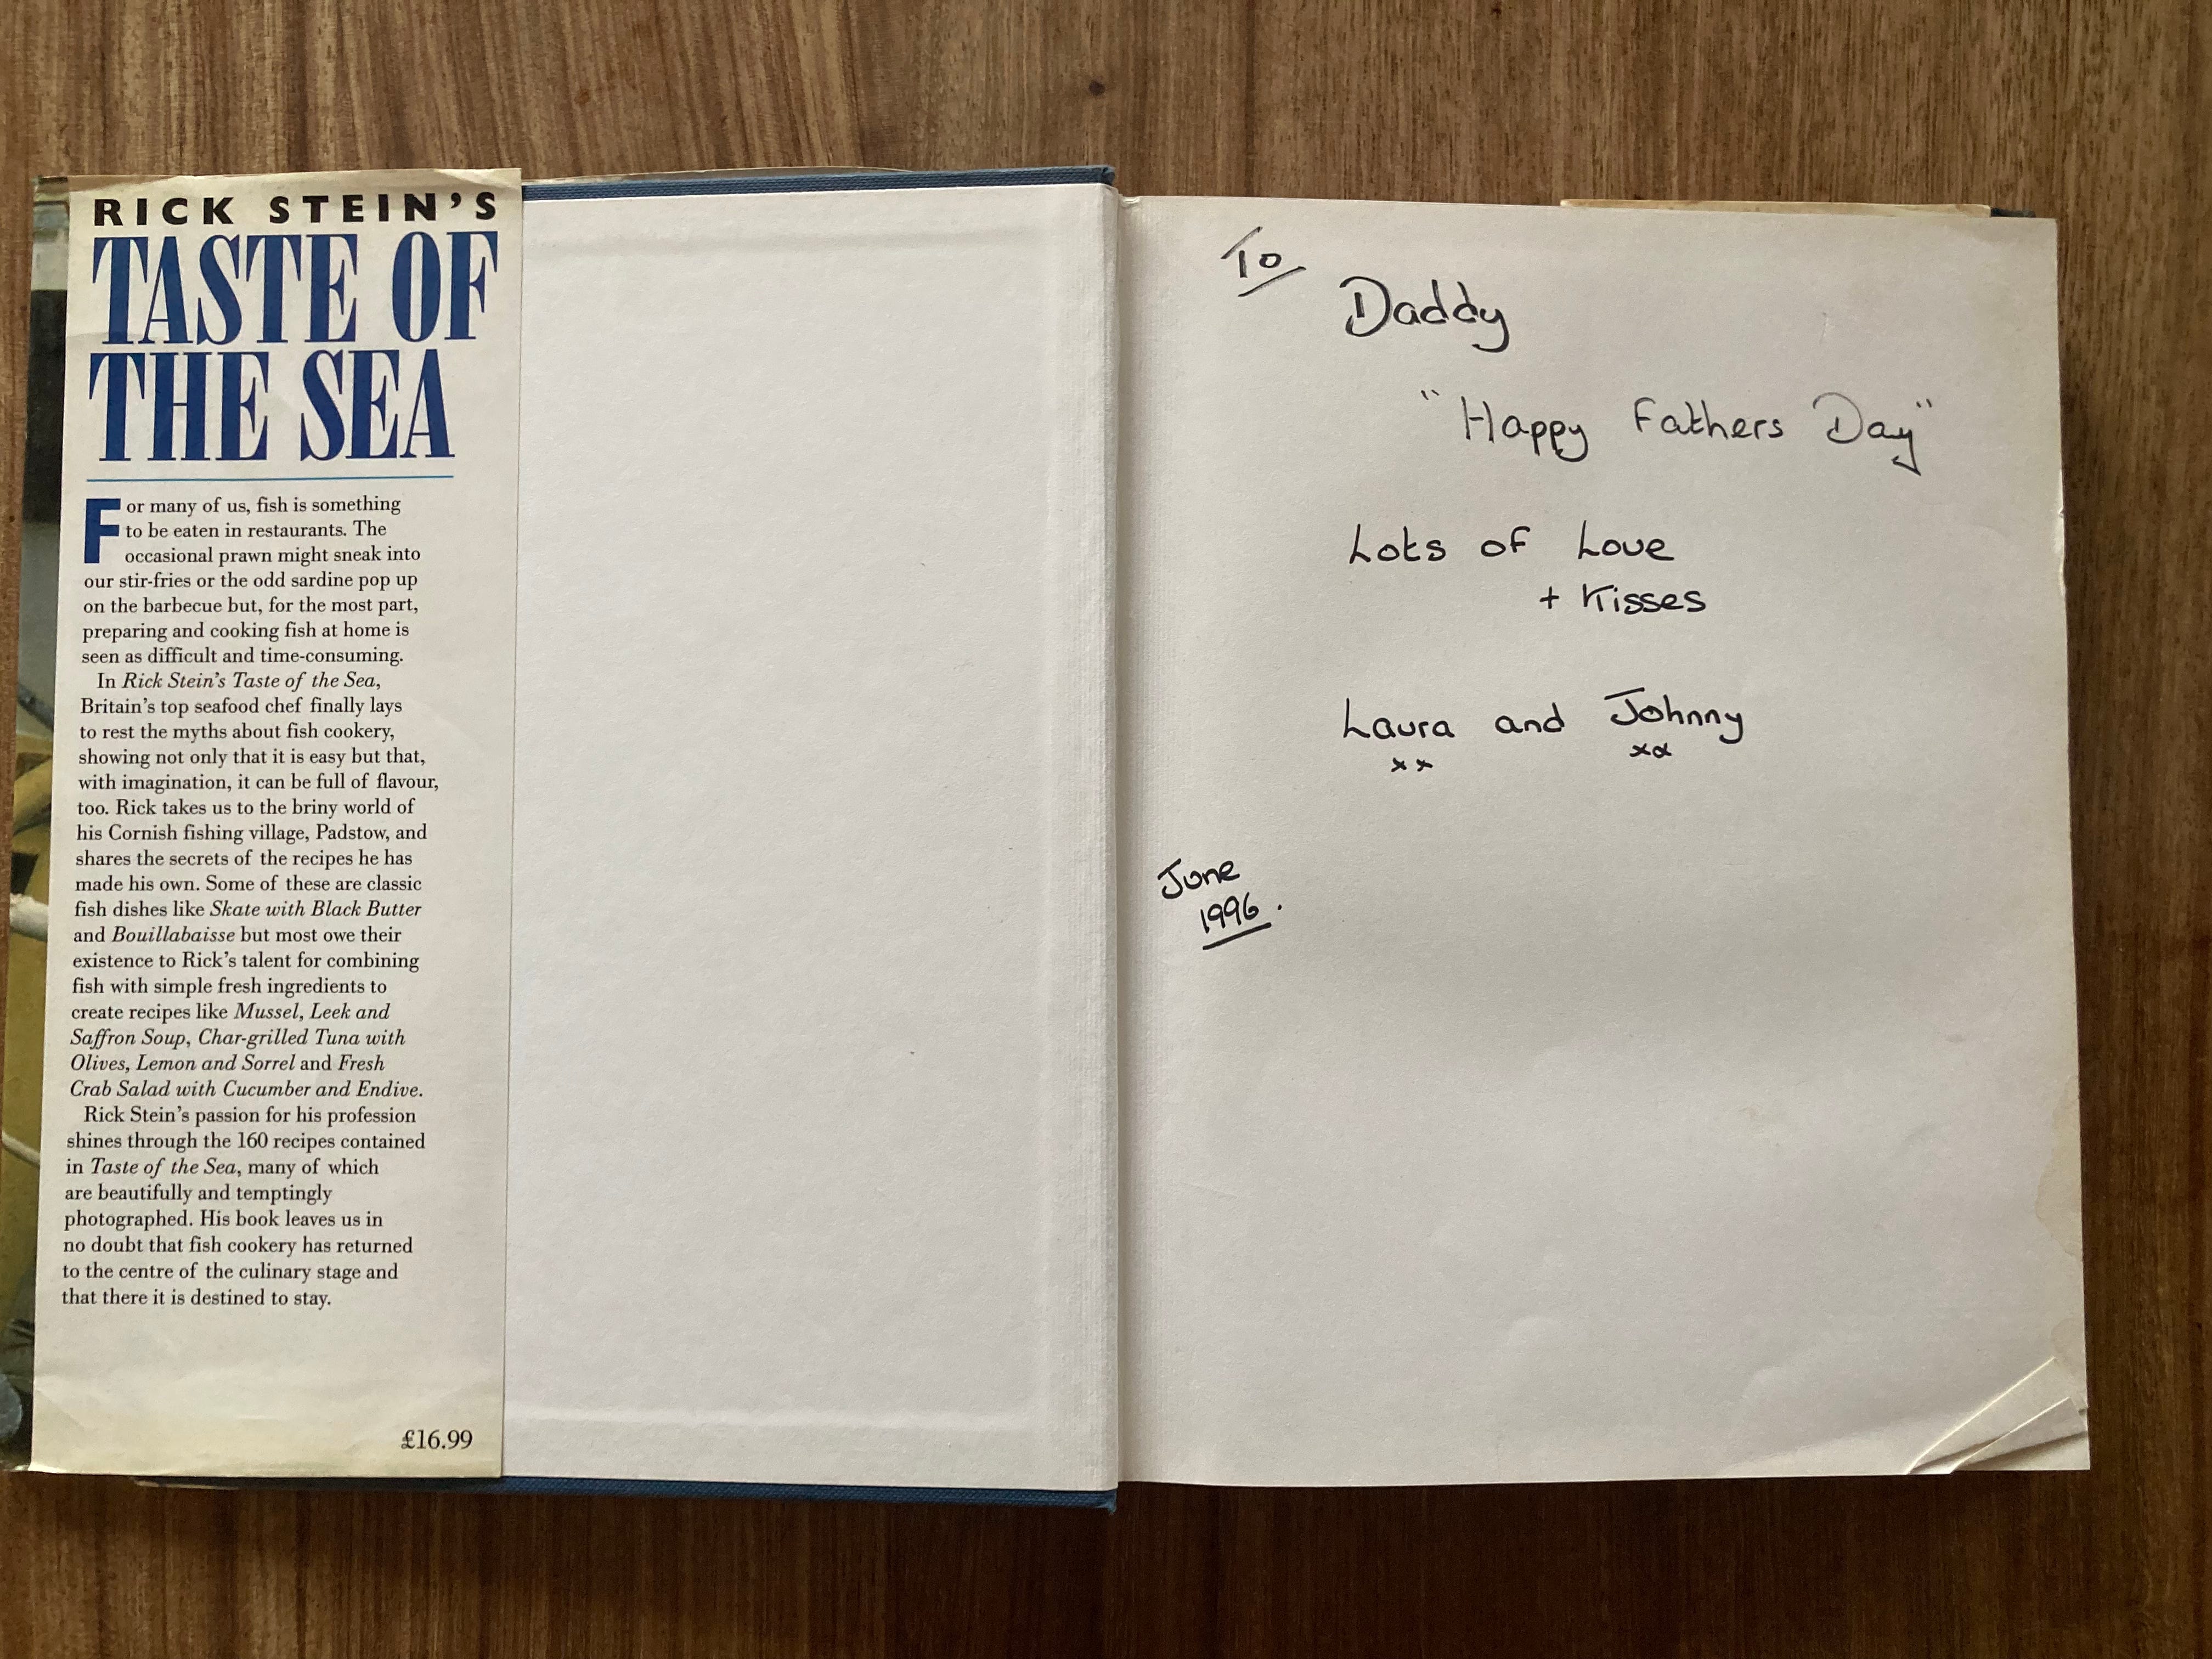 RICK STEIN'S
TASTE OF
THE SEA
For many of us, fish is something
to be eaten in restaurants. The
occasional prawn might sneak into
our stir-fries or the odd sardine pop up
on the barbecue but, for the most part,
preparing and cooking fish at home is
seen as difficult and time-consuming.
In Rick Stein's Taste of the Sea,
Britain's top seafood chef finally lays
to rest the myths about fish cookery,
showing not only that it is easy but that,
with imagination, it can be full of flavour,
too. Rick takes us to the briny world of
his Cornish fishing village, Padstow, and
shares the secrets of the recipes he has
made his own. Some of these are classic
fish dishes like Skate with Black Butter
and Bouillabaisse but most owe their
existence to Rick's talent for combining
fish with simple fresh ingredients to
create recipes like Mussel, Leek and
Saffron Soup, Char-grilled Tuna with
Olives, Lemon and Sorrel and Fresh
Crab Salad with Cucumber and Endive.
Rick Stein's passion for his profession
shines through the 160 recipes contained
in Taste of the Sea, many of which
are beautifully and temptingly
photographed. His book leaves us in
no doubt that fish cookery has returned
to the centre of the culinary stage and
that there it is destined to stay.
£16.99
To
Daddy
"Happy Fathers Day"
Lots of Love
+ Kisses
Laura and Johnny
xx xx
June
1996.